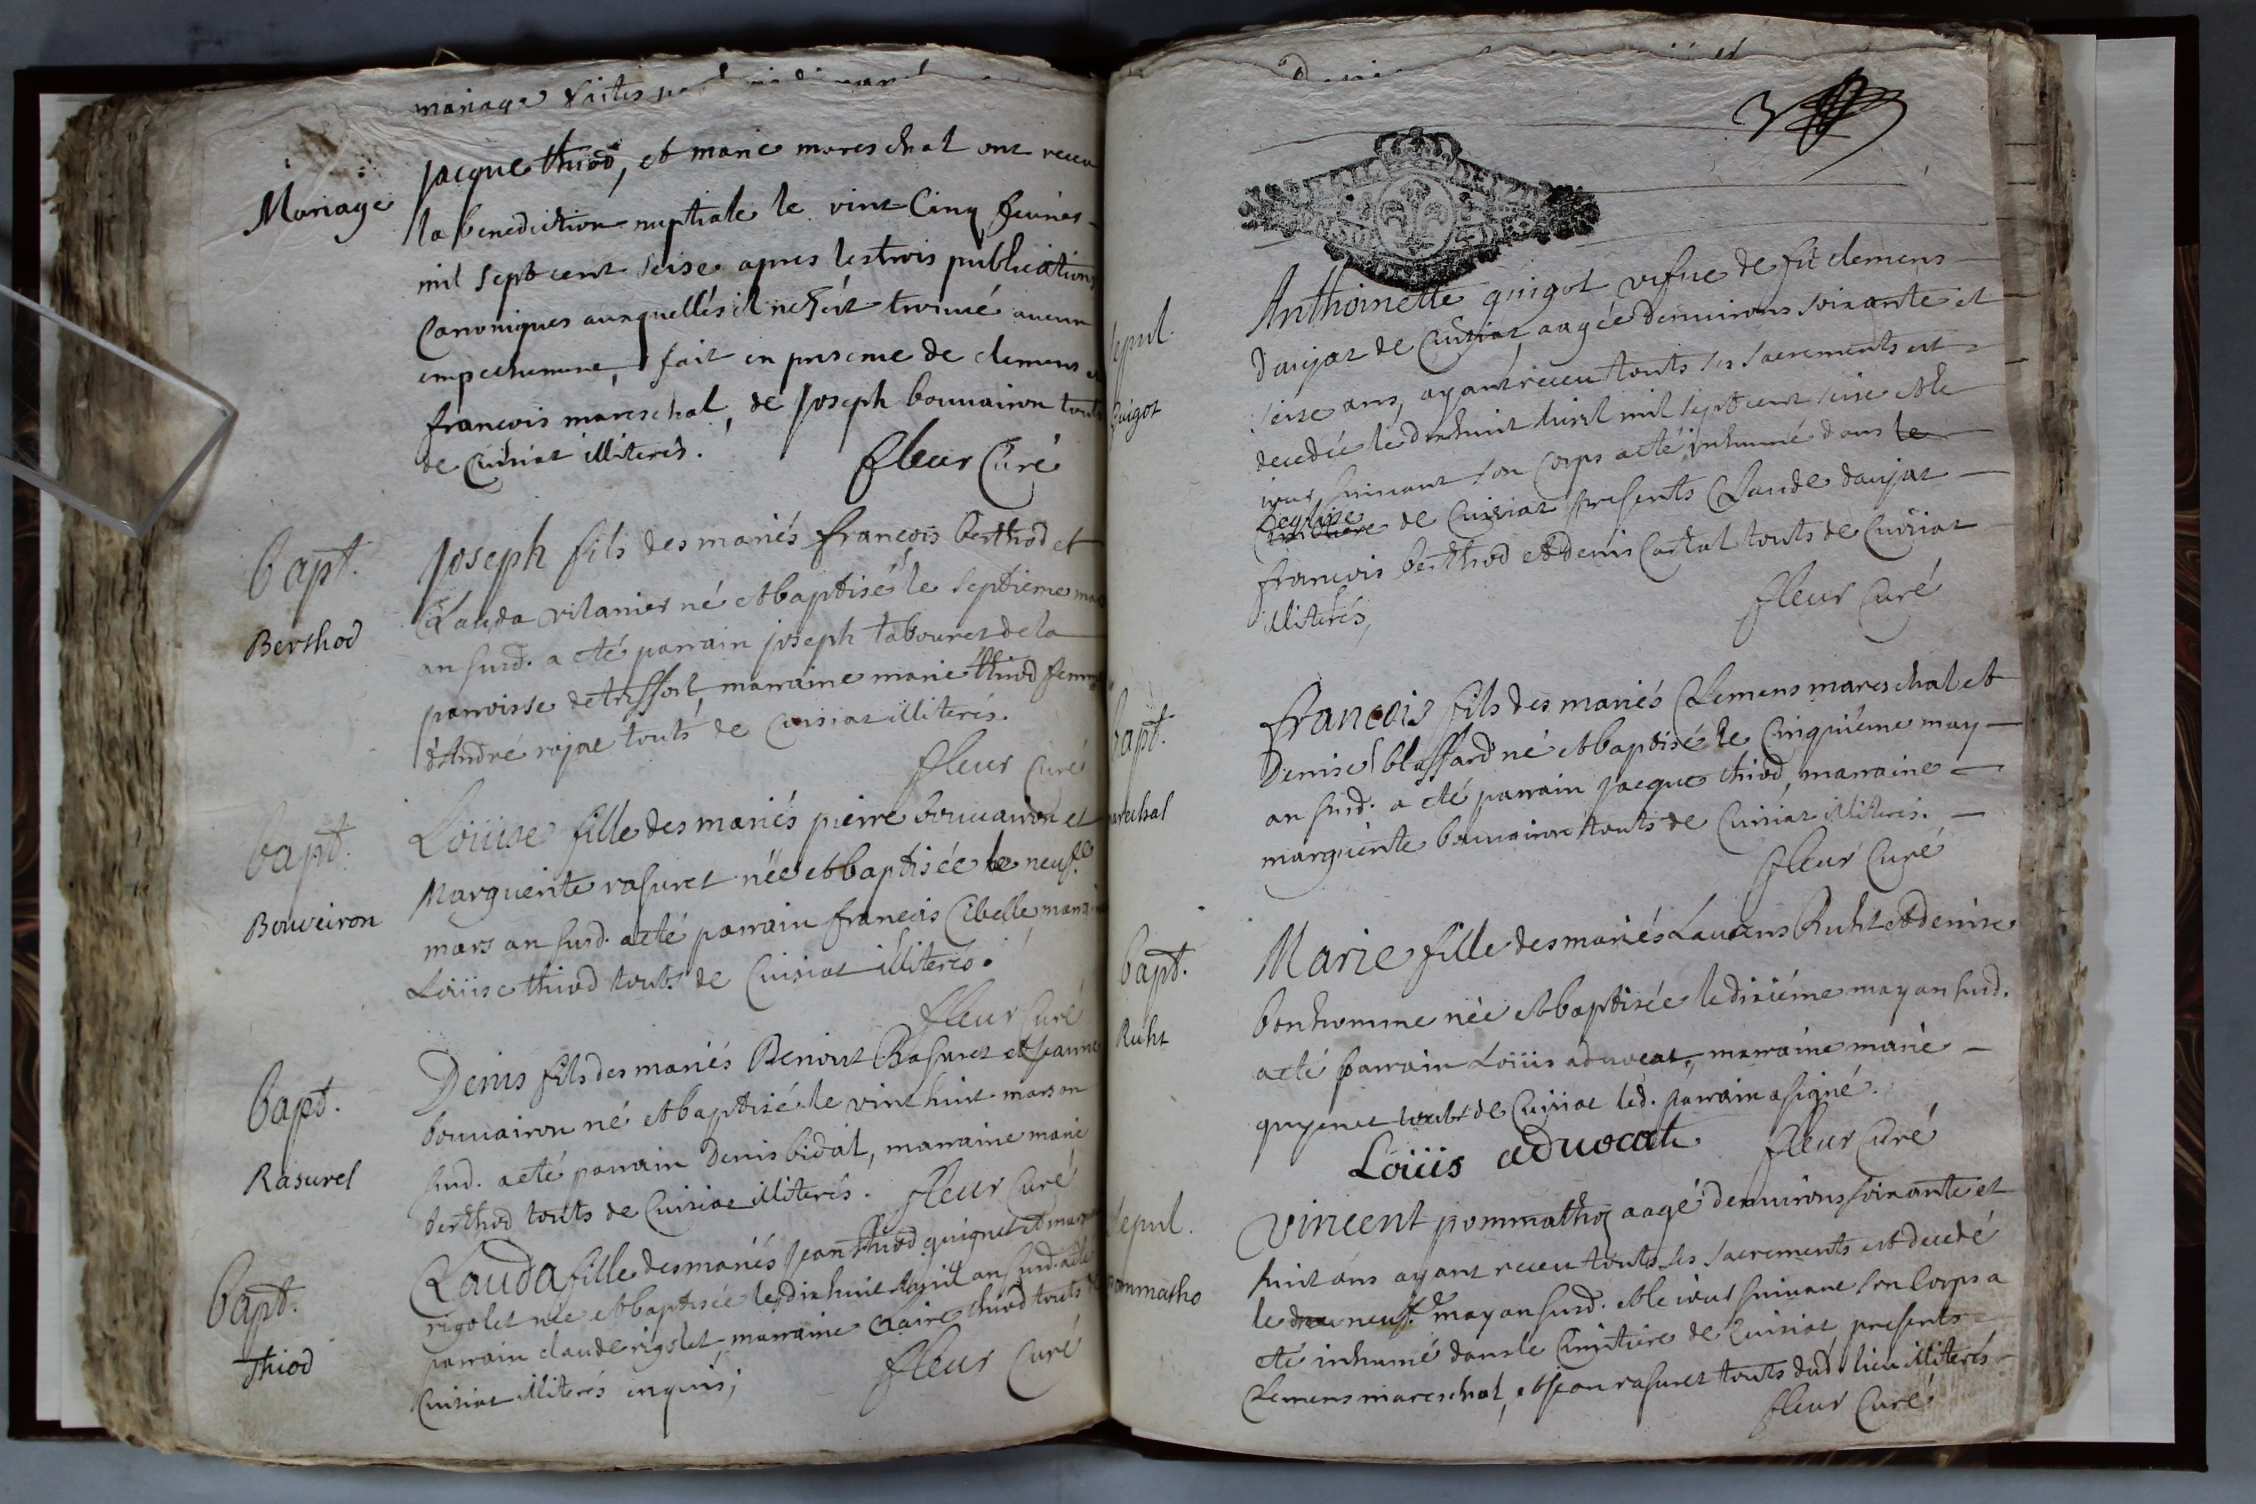 mariage
Mariage
Jacque thiod, et marie mareschal ont receu
la benediction nuptiale le vint Cinq feurier
mil sept cent seise apres les trois publications
Canoniques auxquelles il ne s'est trouué aucun
empechement, fait en presence de clemens et
francois mareschal, de Joseph bouuairon touts
de Cuisiat illiterés.
fleur Curé
bapt.
Berthod
Joseph fils des mariés francois berthod et
Clauda vilanier né et baptisé le septieme mars
an susd. a eté parrain joseph tabouret de la
parroisse de treffort, marraine marie thiod femme
d'André rojat touts de Cuisiat illiterés.
fleur Curé
bapt.
Bouveiron
Loüise fille des mariés pierre bouuairon et
Marguerite rasuret née et baptisée le neuf.e
mars an susd. a eté parrain francois Cibelle, marraine
Loüise thiod touts de Cuisiat illiterés.
fleur Curé
bapt.
Rasurel
Denis fils des mariés Benoit Rasuret et jeanne
bouuairon né et baptisé le vint huit mars an
susd. a eté parrain Denis bidat, marraine marie
berthod touts de Cuisiat illiterés. fleur Curé
bapt.
Thiod
Clauda fille des mariés Jean thiod guignet et
rigolet née et baptisée le dix huit Auril an susd. a eté
parrain claude rigolet, marraine Claire thiod touts de
Cuisiat illiterés enquis;
fleur Curé
sepul.
Guigot
Anthoinette guigot vefue de fût clemens
daujat de Cuisiat, aagée denuirons soixante et
seise ans, ayant receu touts ses sacrements est
decedée le dixhuit Auril mil sept cent seise et le
iour suiuant son Corps a eté inhumé dans le
L'eglise
Cimitiere de Cuisiat presents Claude daujat
francois berthod et denis Cartal touts de Cuisiat
illiterés,
fleur Curé
bapt.
marechal
francois fils des mariés Clemens mareschal et
Denise blaffard né et baptisé le Cinquiéme may
an susd. a eté parrain jacque thiod, marraine
marguerite bouuairon touts de Cuisiat illiterés.
fleur Curé
bapt.
Ruht
Marie fille des mariés Laurens Ruht et denise
bonhomme née et baptisée le dixiéme may an susd.
a eté parrain Loüis aduocat, marraine marie
guyenet touts de Cuisiat led. parrain a signé.
Loüis aduocat fleur Curé
sepul.
pommatho
vincent pommathoz aagé denuirons soixante et
huit ans ayant receu touts ses sacrements est decedé
le neuf.e may an susd. et le iour suiuant son Corps a
eté inhumé dans le Cimitiére de Cuisiat, presents
Clemens mareschal, et jean rasuret touts dud. lieu illiterés
fleur Curé